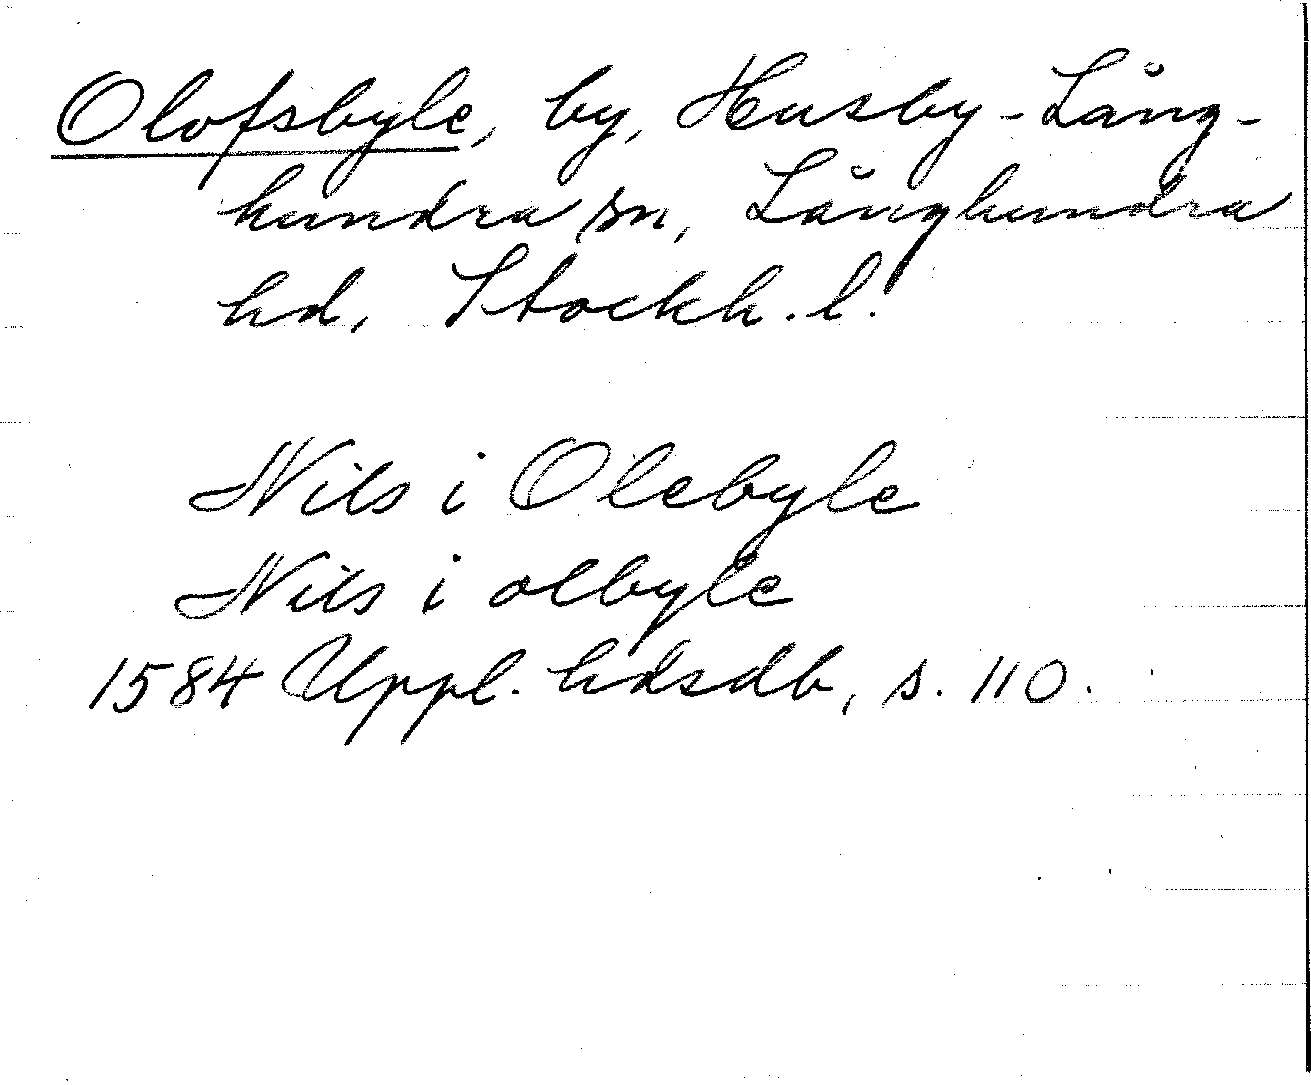 Olofsbyle, by, Husby-Lång-
hundra sn, Långhundra
hd, Stockh. l.
Nils i Olebyle
Nils i olbyle
1584 Uppl. hdsdb, s. 110.